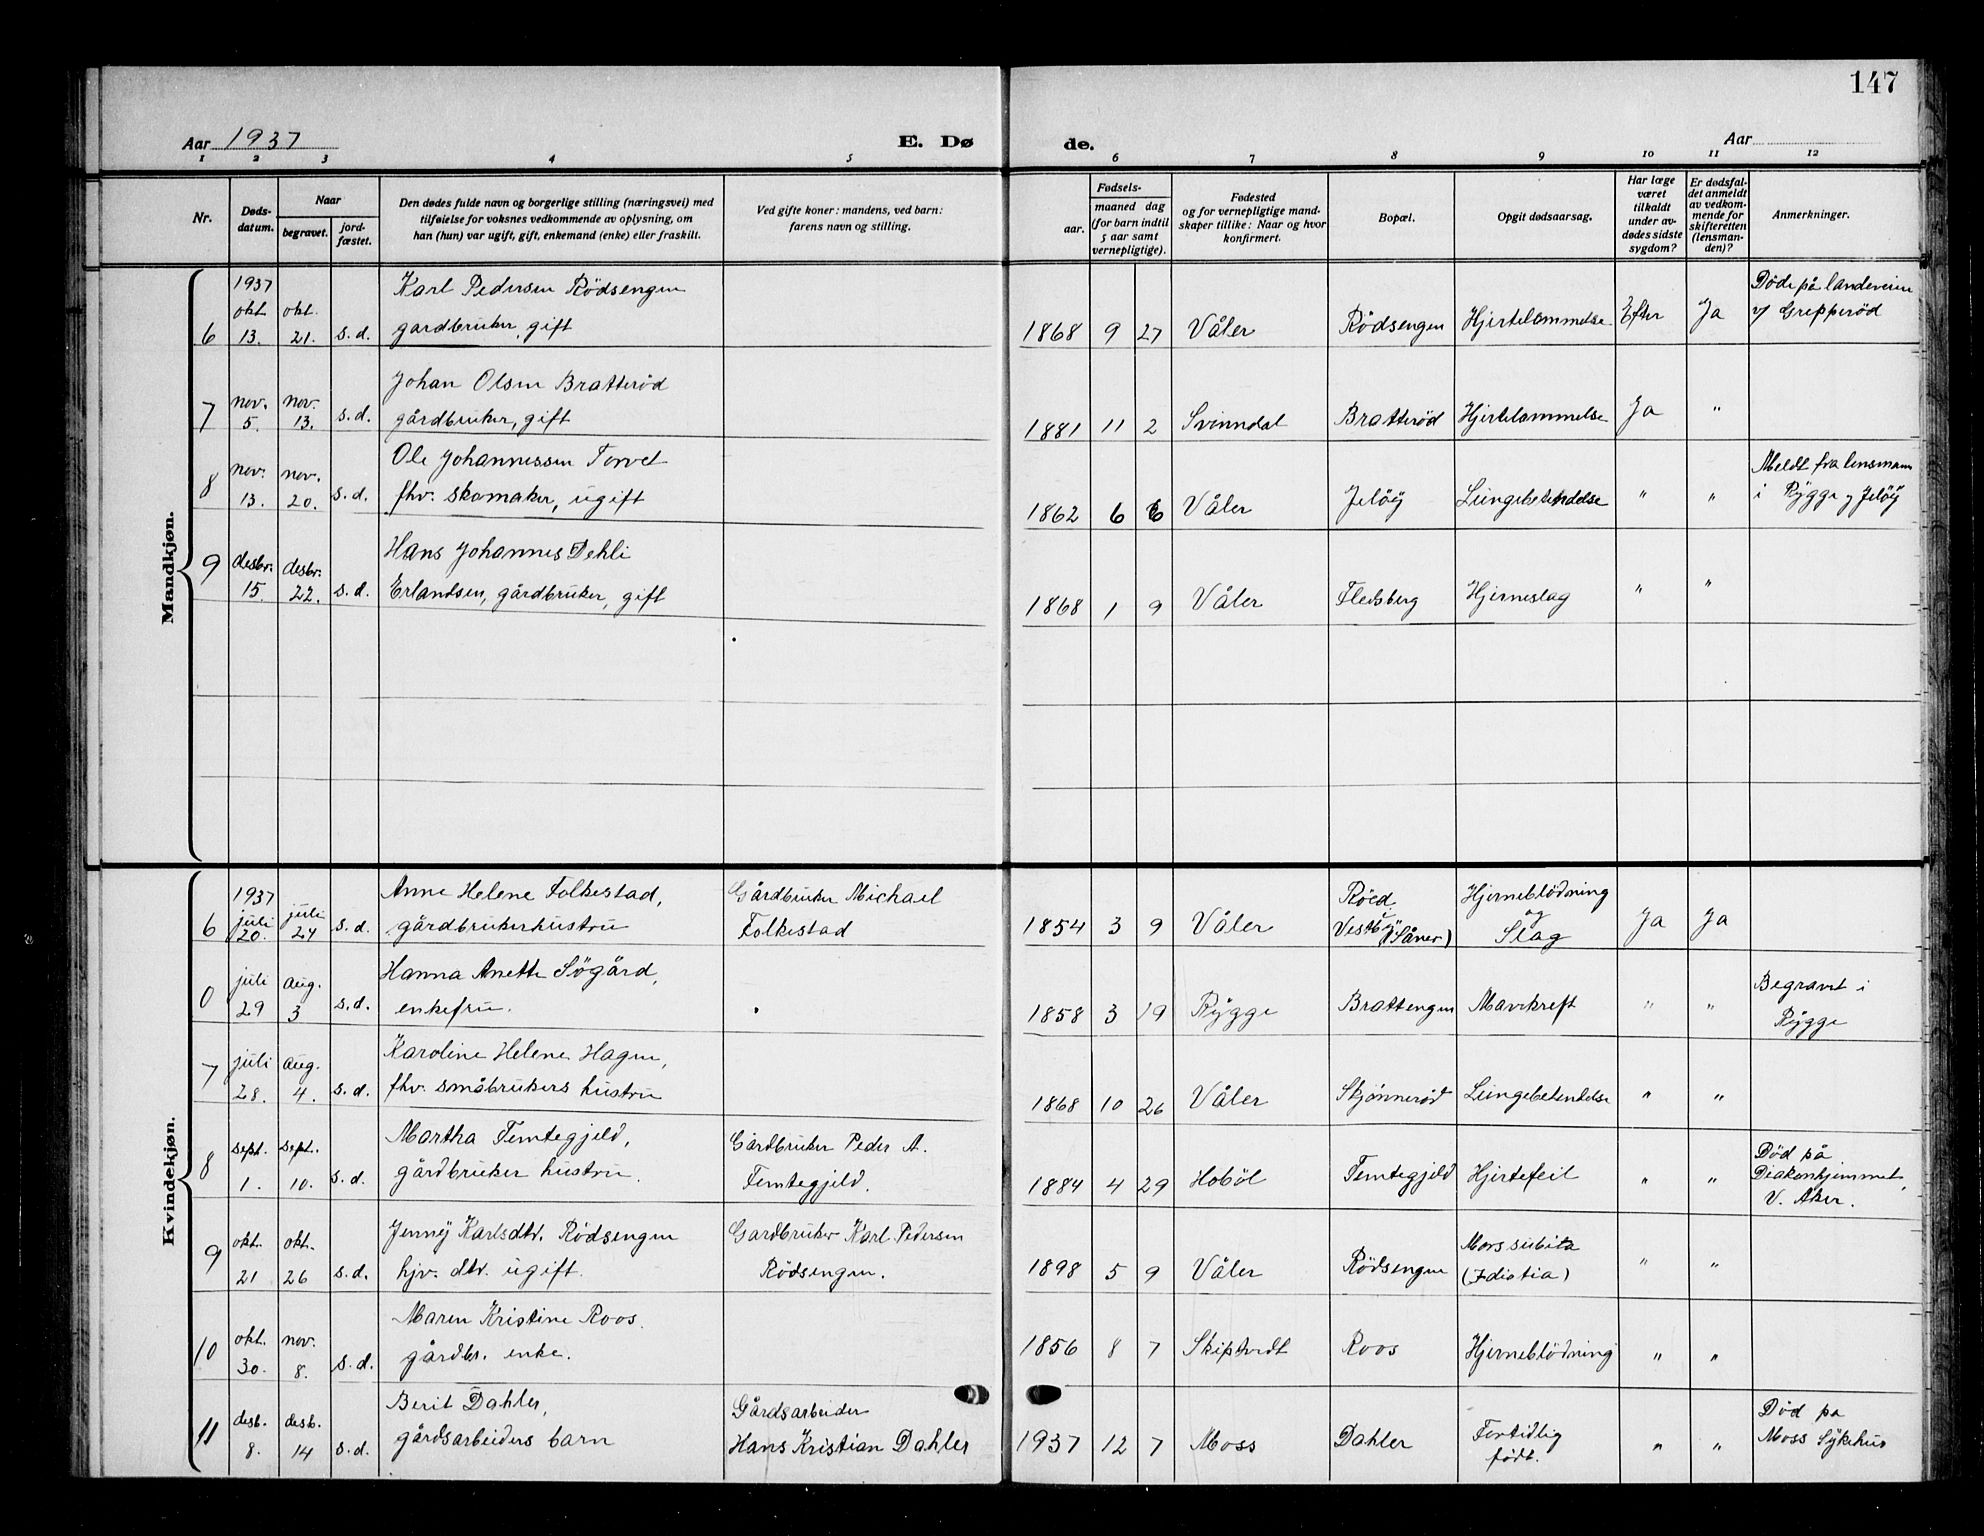 147
Aar 1937
E. Dø
de.
Aar
1 2 3 4 5 6 7 8 9 10 11 12
Nr.
Døds-
datum.
Naar
begravet.
jord-
fæstet.
Den dødes fulde navn og borgerlige stilling (næringsvei) med
tilføielse for voksnes vedkommende av oplysning, om
han (hun) var ugift, gift, enkemand (enke) eller fraskilt.
Ved gifte koner: mandens, ved barn:
farens navn og stilling.
Fødsels-
aar.
maaned dag
(for barn indtil
5 aar samt
vernepligtige).
Fødested
og for vernepligtige mand-
skaper tillike: Naar og hvor
konfirmert.
Bopæl.
Opgit dødsaarsag.
Har læge
været
tilkaldt
under av-
dødes sidste
sygdom?
Er dødsfal-
det anmeldt
av vedkom-
mende for
skifteretten
(lensman-
den)?
Anmerkninger.
Mandkjøn.
1937
Karl Pedersen Rödsengen Döde på landeveien
6 okt. 13. okt. 21. s.d. gardbruker, gift 1868 9 27 Våler Rödsengen Hjertelammelse Efter Ja v/ Grepperöd
Johan Olsen Bratteröd
7 nov. 5. nov. 13. s.d. gårdbruker, gift 1881 11 2 Svinndal Bratteröd Hjertelammelse Ja "
Ole Johannessen Torvet Meldt fra lensmann
8 nov. 13. nov. 20. s.d. fhv. skomaker, ugift 1862 6 6 Våler Jelöy Lungebetendelse " " i Rygge og Jelöy
Hans Johannes Dehli
9 desbr. 15. desbr. 22. s.d. Erlandsen, gårdbruker, gift 1868 1 9 Våler Fledsberg Hjerneslag " "
Kvindekjøn.
1937
Anne Helene Folkestad, Gårdbruker Michael Röed Hjerneblödning
6 juli 20. juli 24 s.d. gårdbrukerhustru Folkestad 1854 3 9 Våler Vestby (Såner) og Slag Ja Ja
Hanna Anette Sögård, Begravet i
0 juli 29 aug. 3 s.d. enkefru. 1858 3 19 Rygge Brattengen Mavekreft " " Rygge
Karoline Helene Hagen,
7 juli 28. aug. 4. s.d. fhv. småbrukers hustru 1868 10 26 Våler Skjönneröd Lungebetendelse " "
Martha Femtegjeld, Gårdbruker Peder A. Död på
8 sept. 1. sept. 10. s.d. gårdbruker hustru. Femtegjeld. 1884 4 29 Hobøl Femtegjeld Hjertefeil " " Diakonhjemmet,
V. Aker.
Jenny Karlsdtr. Rödsengen Gardbruker Karl Pedersen Mors subita
9 okt. 21 okt. 26 s.d. hjv. dtr. ugift. Rödsengen. 1898 5 9 Våler Rödsengen (Idiotia) " "
Maren Kristine Roos.
10 okt. 30. nov. 8. s.d. gårdbr. enke. 1856 8 7 Skiptvedt Roos Hjerneblödning " "
Berit Dahler, Gårdsarbeider Död på
11 desb. 8. desb. 14 s.d. gårdsarbeiders barn Hans Kristian Dahler 1937 12 7 Moss Dahler Fortidlig födt. " " Moss Sykehus